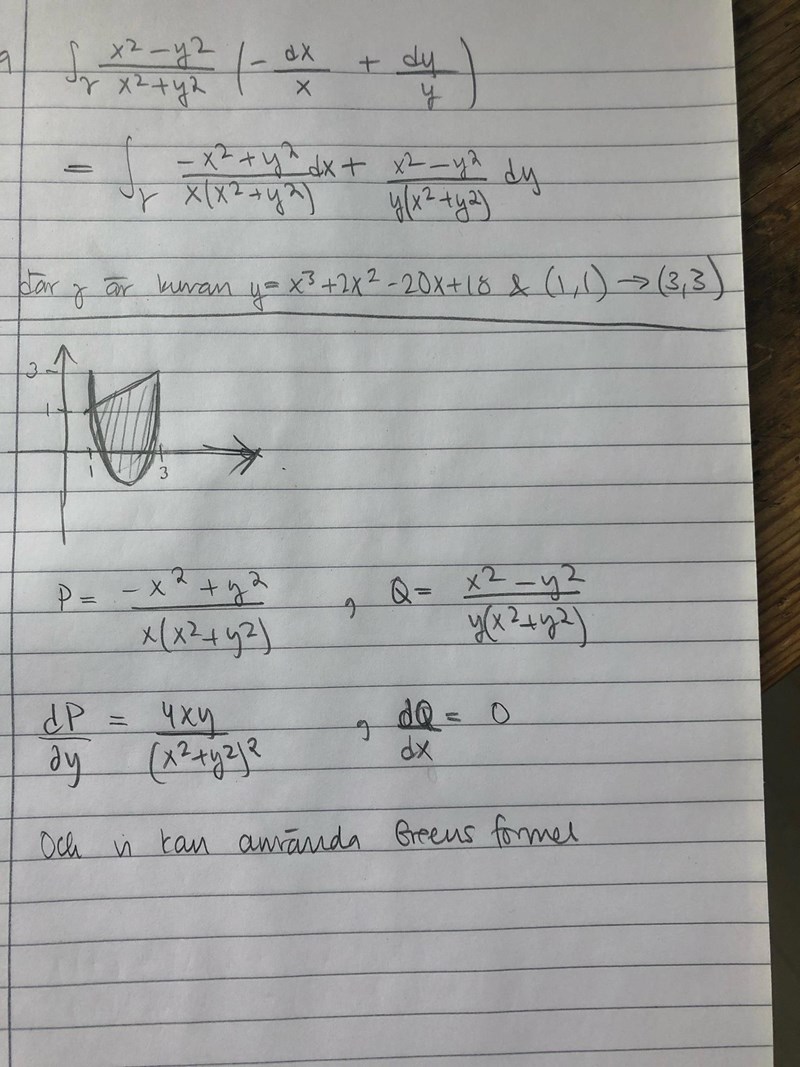 a
∫γ (x² - y²)/(x² + y²) (- dx/x + dy/y)
= ∫γ (-x² + y²)/(x(x² + y²)) dx + (x² - y²)/(y(x² + y²)) dy
där γ är kurvan y = x³ + 2x² - 20x + 18 & (1,1) → (3,3)
3
1
1 3
P = (-x² + y²)/(x(x² + y²)) , Q = (x² - y²)/(y(x² + y²))
dP/∂y = 4xy/(x² + y²)² , dQ/dx = 0
Och vi kan använda Greens formel